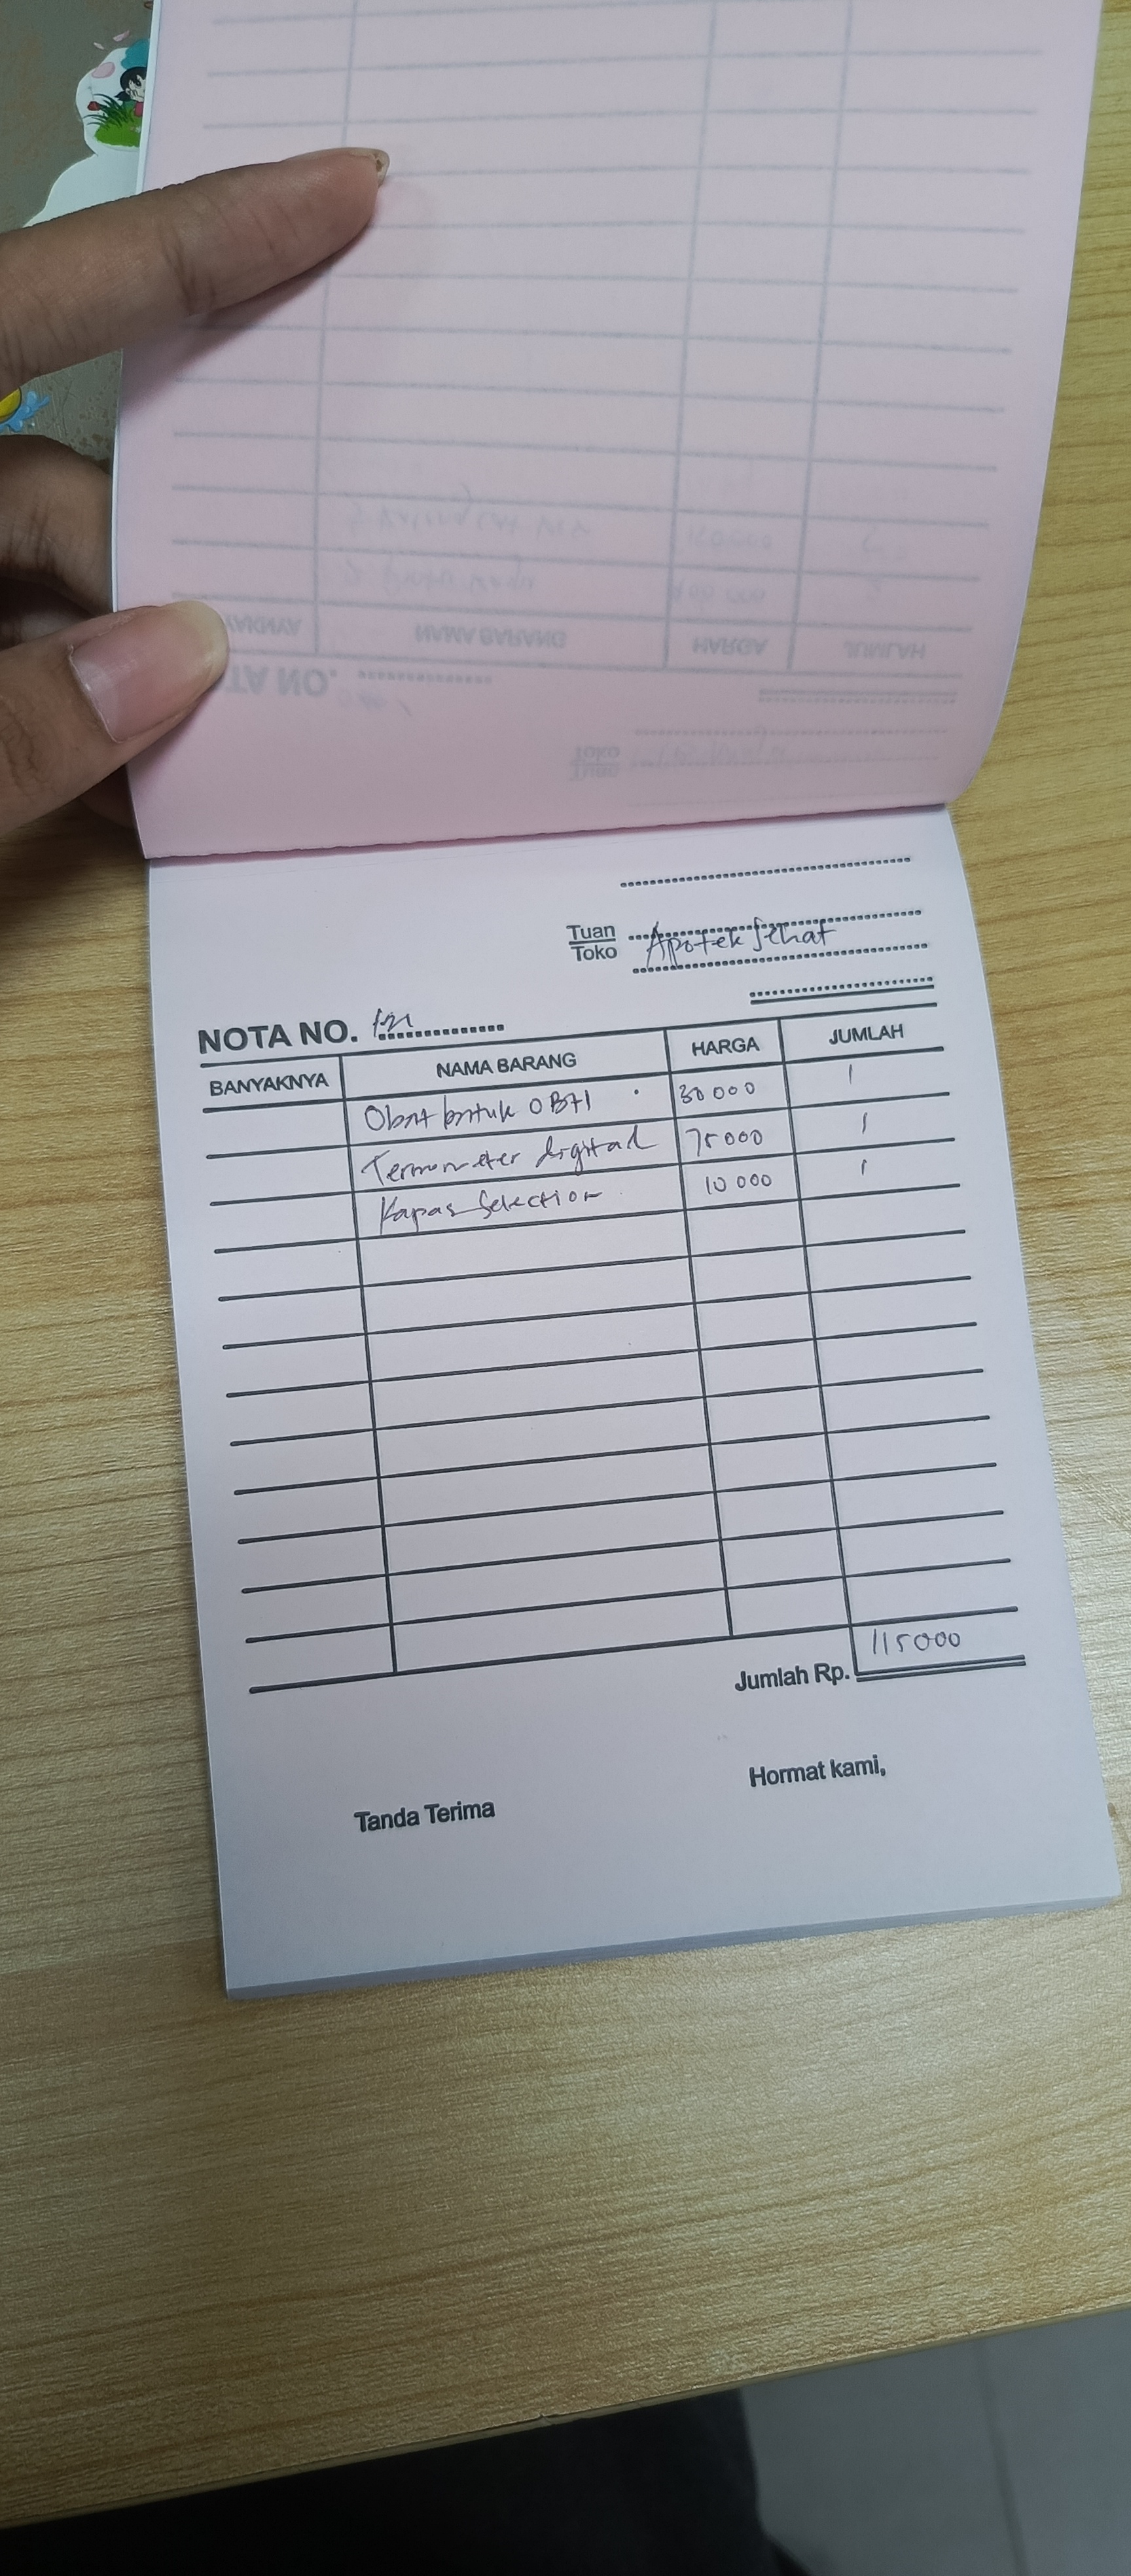 Tuan
Toko Apotek Sehat
NOTA NO.
BANYAKNYA NAMA BARANG HARGA JUMLAH
Obat batuk OBH 30 000 1
Termometer digital 75000 1
Kapas Selection 10 000 1
Jumlah Rp. 115000
Hormat kami,
Tanda Terima